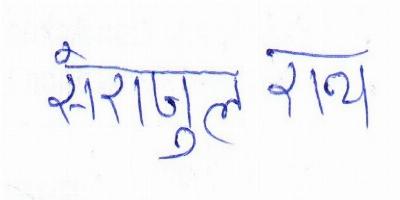 सेराजुल राय